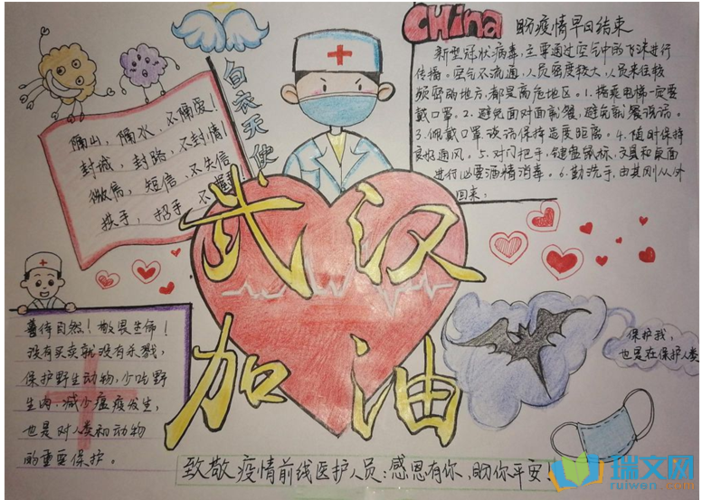 CHina 盼疫情早日结束
新型冠状病毒,主要通过空气中的飞沫进行
传播。空气不流通,人员密度较大,人员来往较
频密的地方,都是高危地区。1.搭乘电梯一定要
戴口罩。2.避免面对面就餐,避免就餐说话。
3.佩戴口罩谈话保持适度距离。4.随时保持
良好通风。5.对门把手、键盘鼠标、文具和桌面
进行必要酒精消毒。6.勤洗手,尤其刚从外
回来.
白衣天使
隔山,隔水,不隔爱!
封城,封路,不封情!
微信,短信,不失信
手,招手,不
武汉
加油
善待自然!敬畏生命!
没有买卖就没有杀戮,
保护野生动物,少吃野
生肉.减少瘟疫发生,
也是对人类和动物
的重要保护。
保护我,
也是在保护人类
致敬疫情前线医护人员:感恩有你、盼你平安!
瑞文网
ruiwen.com